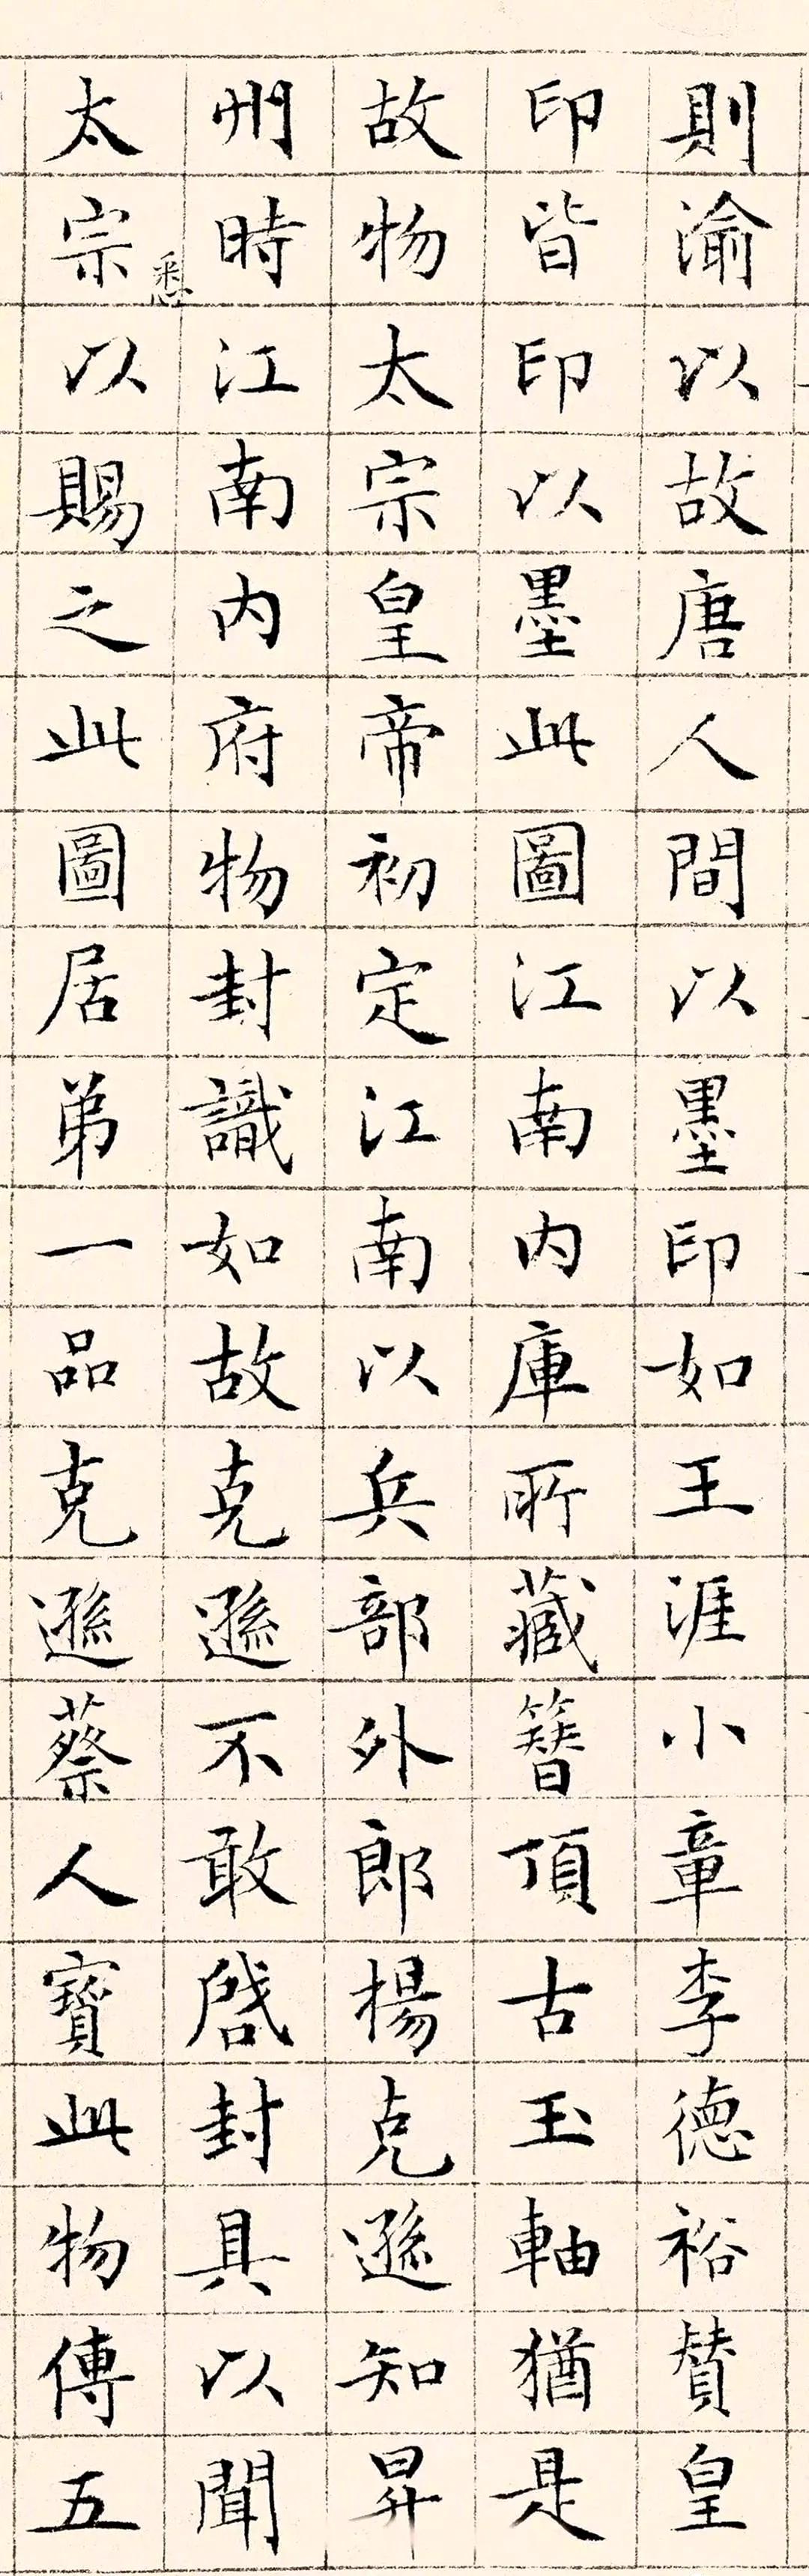 則渝以故唐人間以墨印如王涯小章李德裕贊皇
印皆印以墨此圖江南内庫所藏簪頂古玉軸猶是
故物太宗皇帝初定江南以兵部外郎楊克遜知昇
州時江南内府物封識如故克遜不敢啓封具以聞
太宗悉以賜之此圖居弟一品克遜蔡人寳此物傳五